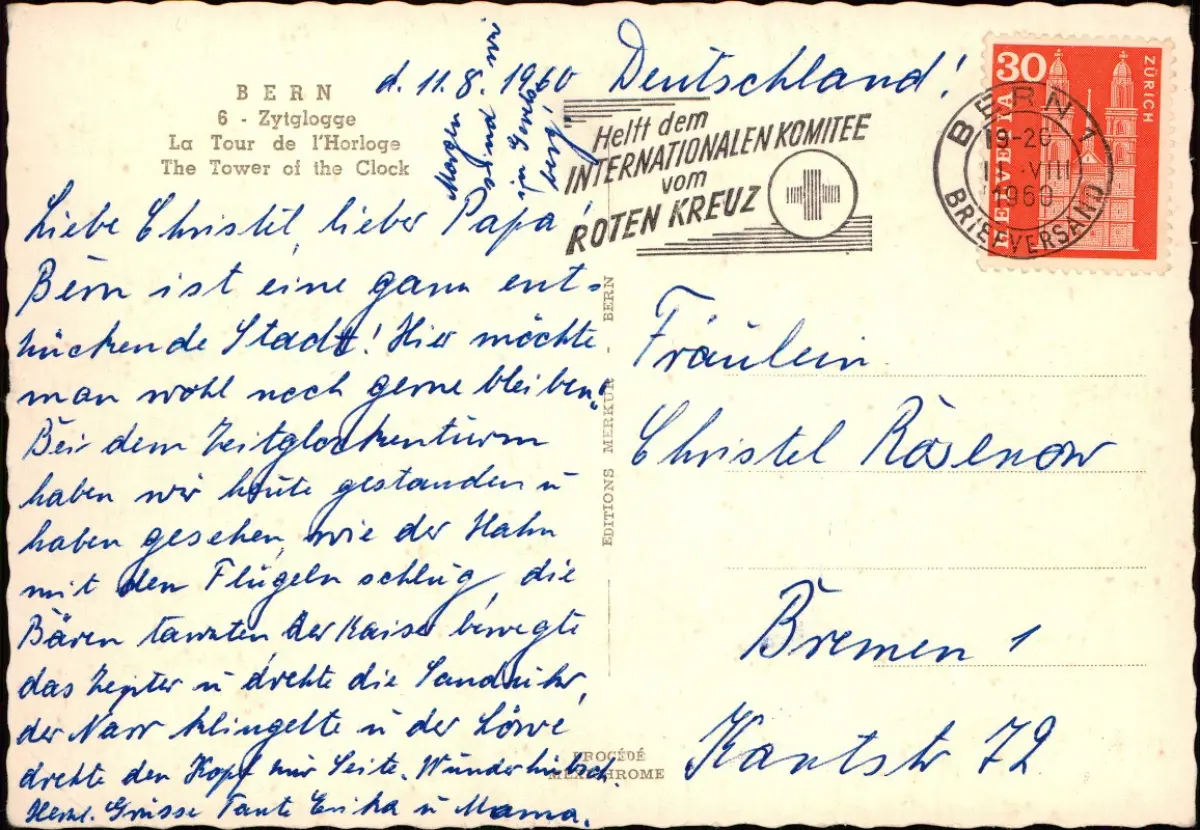 BERN
6 - Zytglogge
La Tour de l'Horloge
The Tower of the Clock
d. 11.8.1960
Deutschland!
Morgen sind wir
im Gewöl
berg!
Liebe Christel, lieber Papa!
Bern ist eine ganz ent-
zückende Stadt! Hier möchte
man wohl noch gerne bleiben.
Bei dem Zeitglockenturm
haben wir heute gestanden u
haben gesehen, wie der Hahn
mit den Flügeln schlug, die
Bären tanzten, der Kaiser bewegte
das Zepter u drehte die Sanduhr,
der Narr klingelte u der Löwe
drehte den Kopf zur Seite. Wunderhübsch.
Herzl. Grüsse Tante Erika u Mama.
EDITIONS MERKUR - BERN
PROCÉDÉ
MEXICHROME
Helft dem
INTERNATIONALEN KOMITEE
vom
ROTEN KREUZ
BERN 1
19-20
VIII
1960
BRIEFVERSAND
30
HELVETIA
ZÜRICH
Fräulein
Christel Rosenow
Bremen 1
Kantstr 72